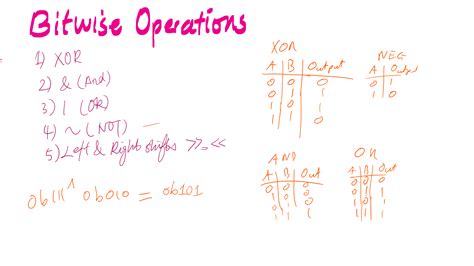 Bitwise Operations
1) XOR
2) & (And)
3) | (OR)
4) ~ (NOT)
5) Left & Right shifts >> <<
0b111 ^ 0b010 = 0b101
XOR
A B Output
0 0 0
0 1 1
1 0 1
1 1 0
NEG
A Output
0 1
1 0
AND
A B Out
0 0 0
0 1 0
1 0 0
1 1 1
OR
A B Out
0 0 0
0 1 1
1 0 1
1 1 1